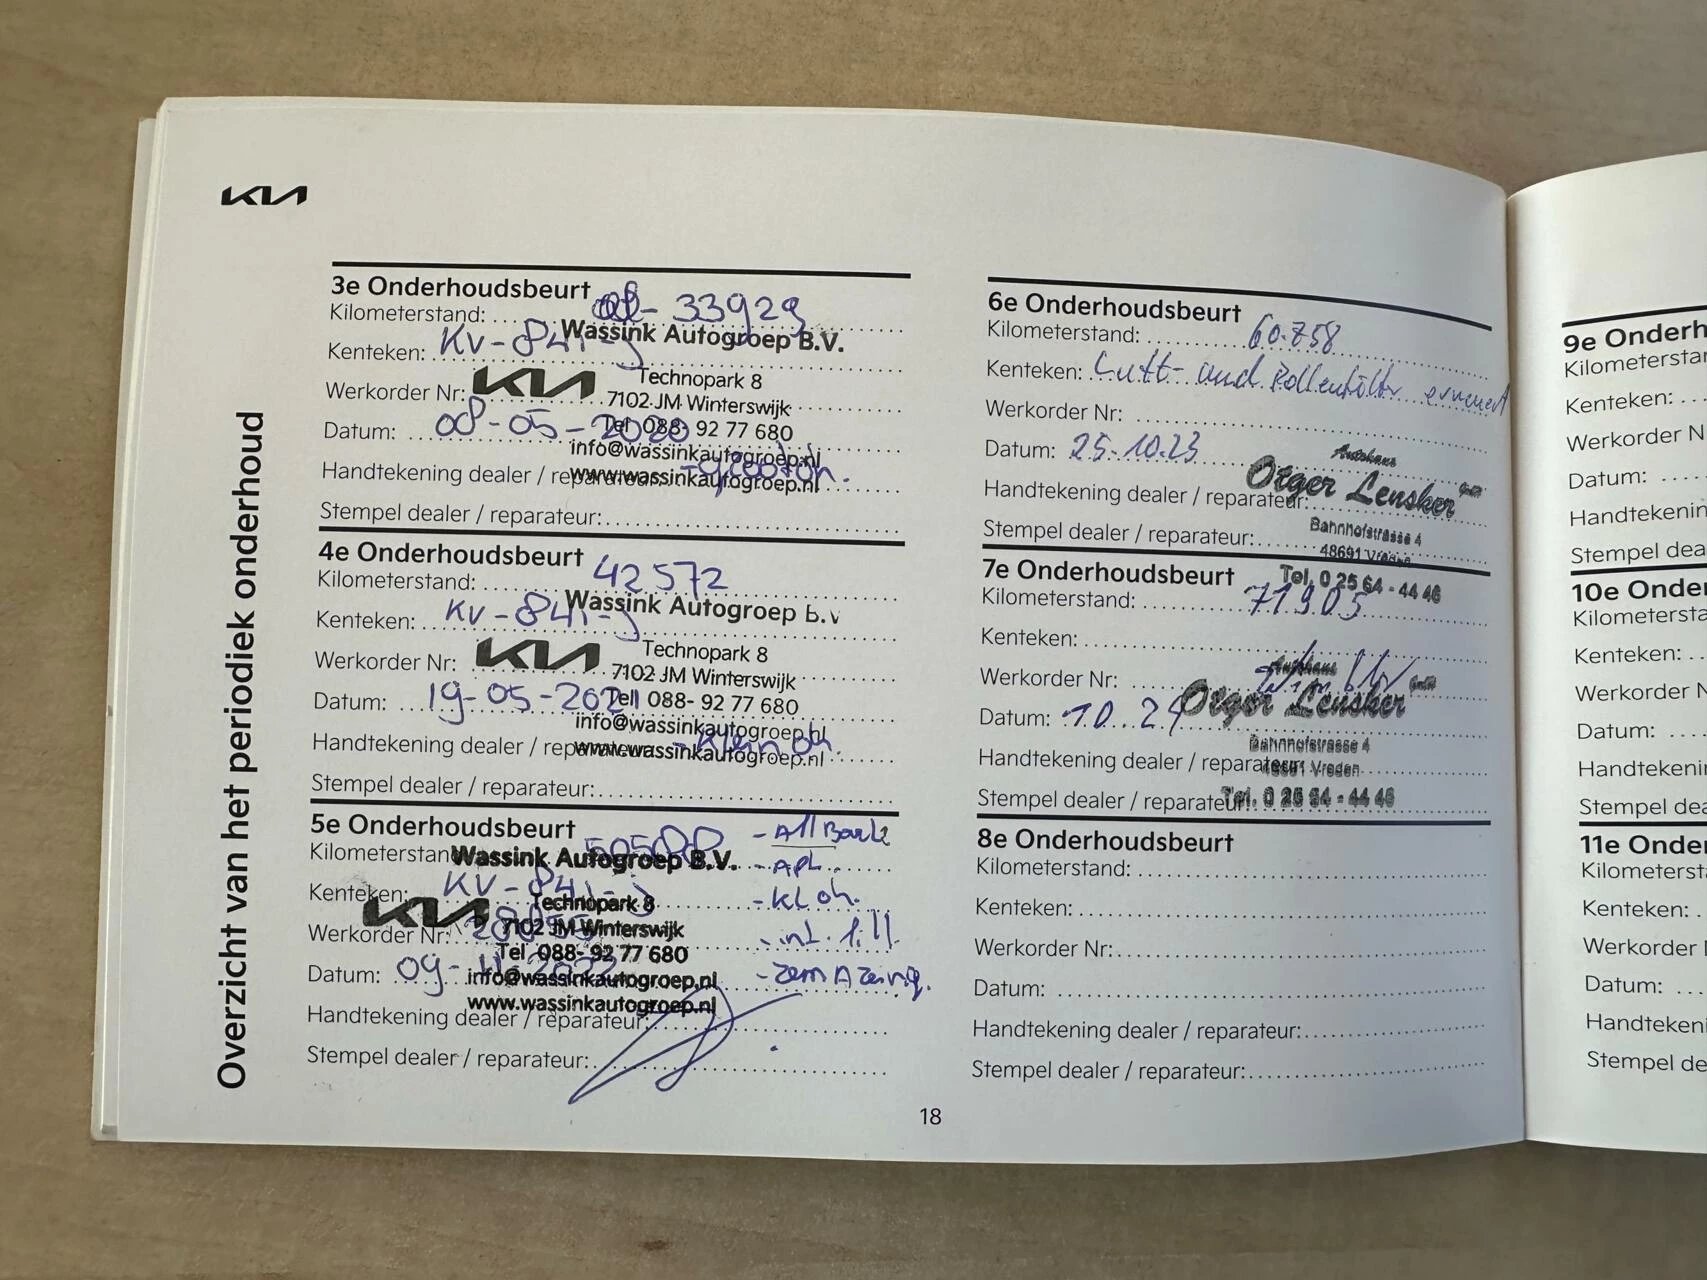 KIA
Overzicht van het periodiek onderhoud
3e Onderhoudsbeurt
Kilometerstand: 33929
Wassink Autogroep B.V.
Kenteken: KV-841-J
Technopark 8
Werkorder Nr: KIA
7102 JM Winterswijk
Datum: 08-05-2020
Tel 088- 92 77 680
info@wassinkautogroep.nl
Handtekening dealer / reparateur: -groot oh.
www.wassinkautogroep.nl
Stempel dealer / reparateur:
4e Onderhoudsbeurt
Kilometerstand: 42572
Wassink Autogroep B.V
Kenteken: KV-841-J
Technopark 8
Werkorder Nr: KIA
7102 JM Winterswijk
Datum: 19-05-2021
Tel 088- 92 77 680
info@wassinkautogroep.nl
Handtekening dealer / reparateur: -Klein oh.
www.wassinkautogroep.nl
Stempel dealer / reparateur:
5e Onderhoudsbeurt
Kilometerstand:
Wassink Autogroep B.V.
- APK
Kenteken: KV-841-J
- KL oh.
KIA
Technopark 8
Werkorder Nr:
7102 JM Winterswijk
Tel 088- 92 77 680
Datum: 09-11-2022
info@wassinkautogroep.nl
www.wassinkautogroep.nl
Handtekening dealer / reparateur:
Stempel dealer / reparateur:
6e Onderhoudsbeurt
Kilometerstand: 60.758
Kenteken: Luft- und Pollenfilter erneuert
Werkorder Nr:
Datum: 25.10.23
Autohaus
Otger Lensker GmbH
Handtekening dealer / reparateur:
Bahnhofstrasse 4
Stempel dealer / reparateur:
48691 Vreden
Tel. 0 25 64 - 44 46
7e Onderhoudsbeurt
Kilometerstand: 71.905
Kenteken:
Werkorder Nr:
Autohaus
Otger Lensker GmbH
Datum: 10.24
Bahnhofstrasse 4
Handtekening dealer / reparateur:
48691 Vreden
Stempel dealer / reparateur:
Tel. 0 25 64 - 44 46
8e Onderhoudsbeurt
Kilometerstand:
Kenteken:
Werkorder Nr:
Datum:
Handtekening dealer / reparateur:
Stempel dealer / reparateur:
18
9e Onderh
Kilometerstan
Kenteken:
Werkorder N
Datum:
Handtekenin
Stempel dea
10e Onder
Kilometersta
Kenteken:
Werkorder N
Datum:
Handtekenin
Stempel dea
11e Onder
Kilometersta
Kenteken:
Werkorder
Datum:
Handteken
Stempel de